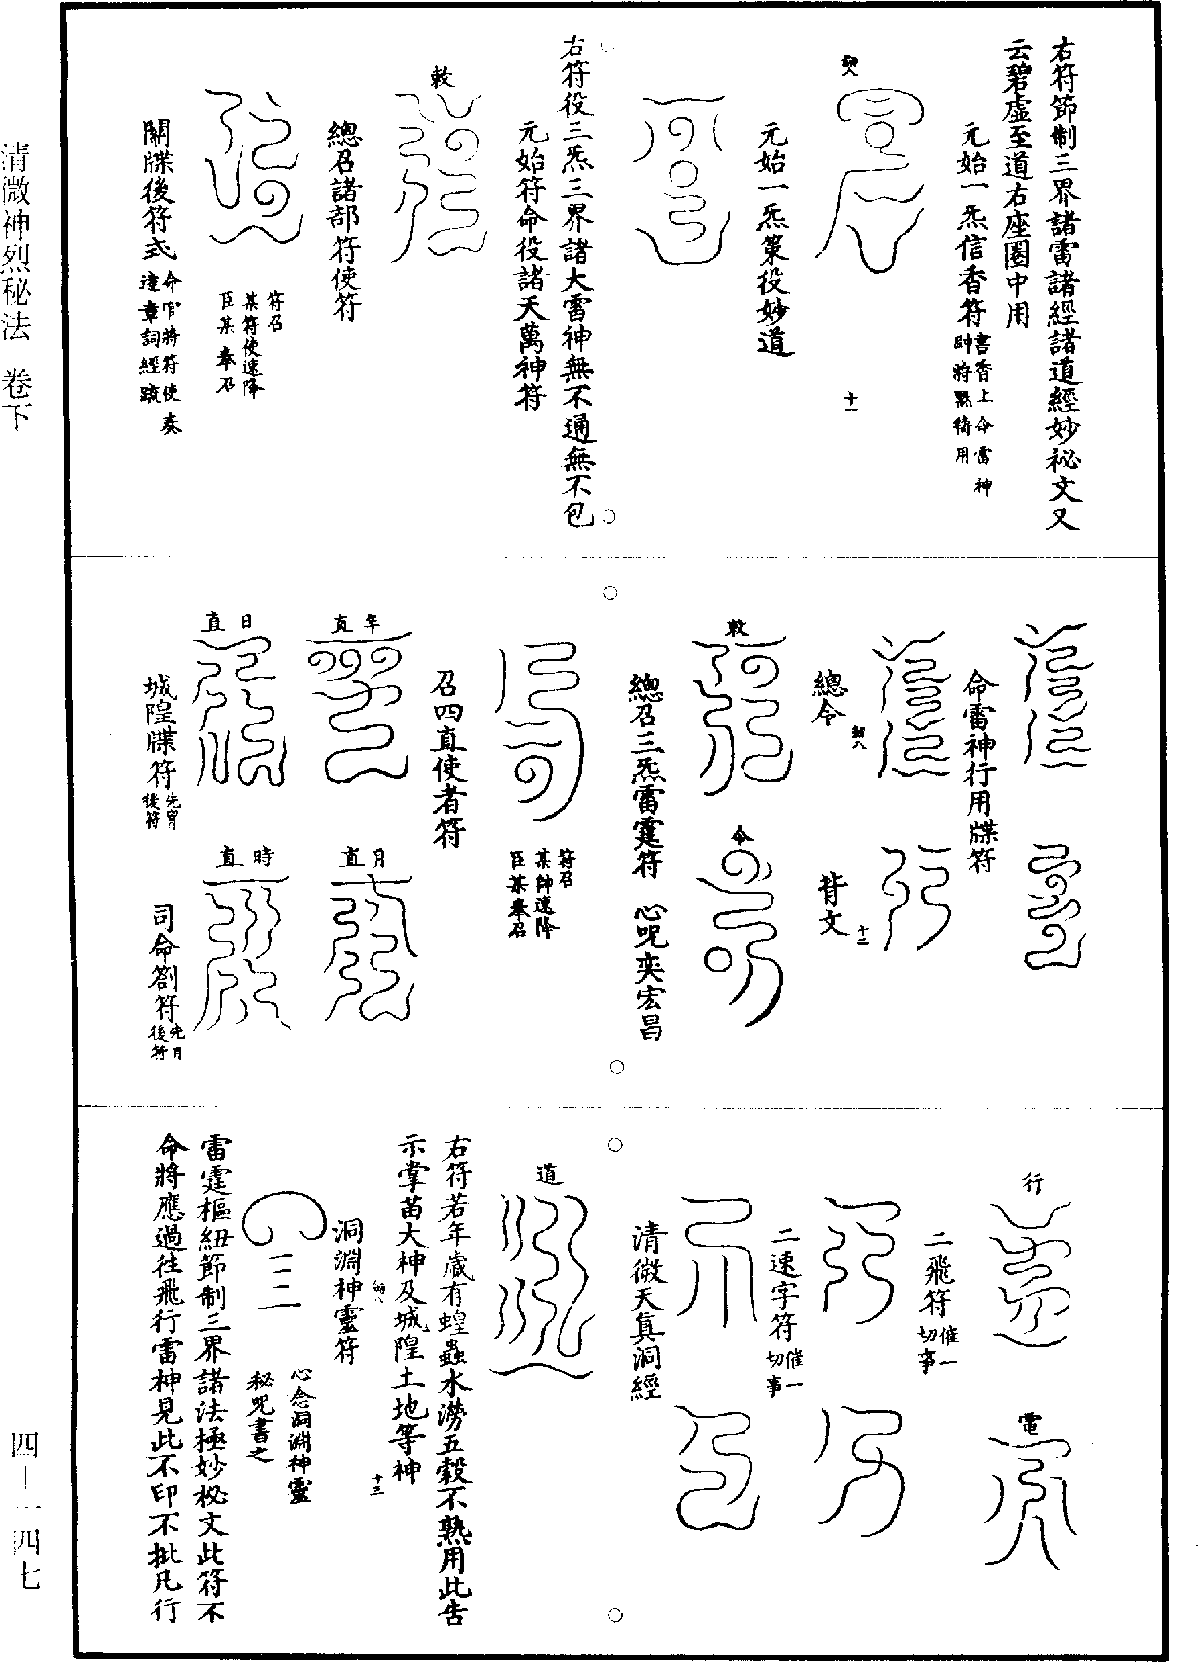 清微神烈秘法 卷下
四—一四七
右符節制三界諸雷諸經諸道經妙祕文又
云碧虛至道右座圈中用
元始一炁信香符
書香上令雷神
帥將點𥙿用
元始一炁策役妙道
十一
右符役三炁三界諸大雷神無不通無不包
元始符命役諸天萬神符
敕
總召諸部符使符
符召
某符使速降
臣某奉召
關牒後符式
命官將符使奏
達章詞經疏
命雷神行用牒符
總令
背文
十二
敕
令
總召三炁雷霆符 心呪奕宏昌
符召
某帥速降
臣某奉召
召四直使者符
年直
月直
日直
時直
城隍牒符
先胃
後符
司命劄符
先月
後符
行
電
二飛符
催一
切事
二速字符
催一
切事
清微天真洞經
道
右符若年歲有蝗蟲水澇五穀不熟用此告
示掌苗大神及城隍土地等神
十三
洞淵神靈符
心念洞淵神靈
秘呪書之
雷霆樞紐節制三界諸法極妙秘文此符不
命將應過往飛行雷神見此不印不批凡行